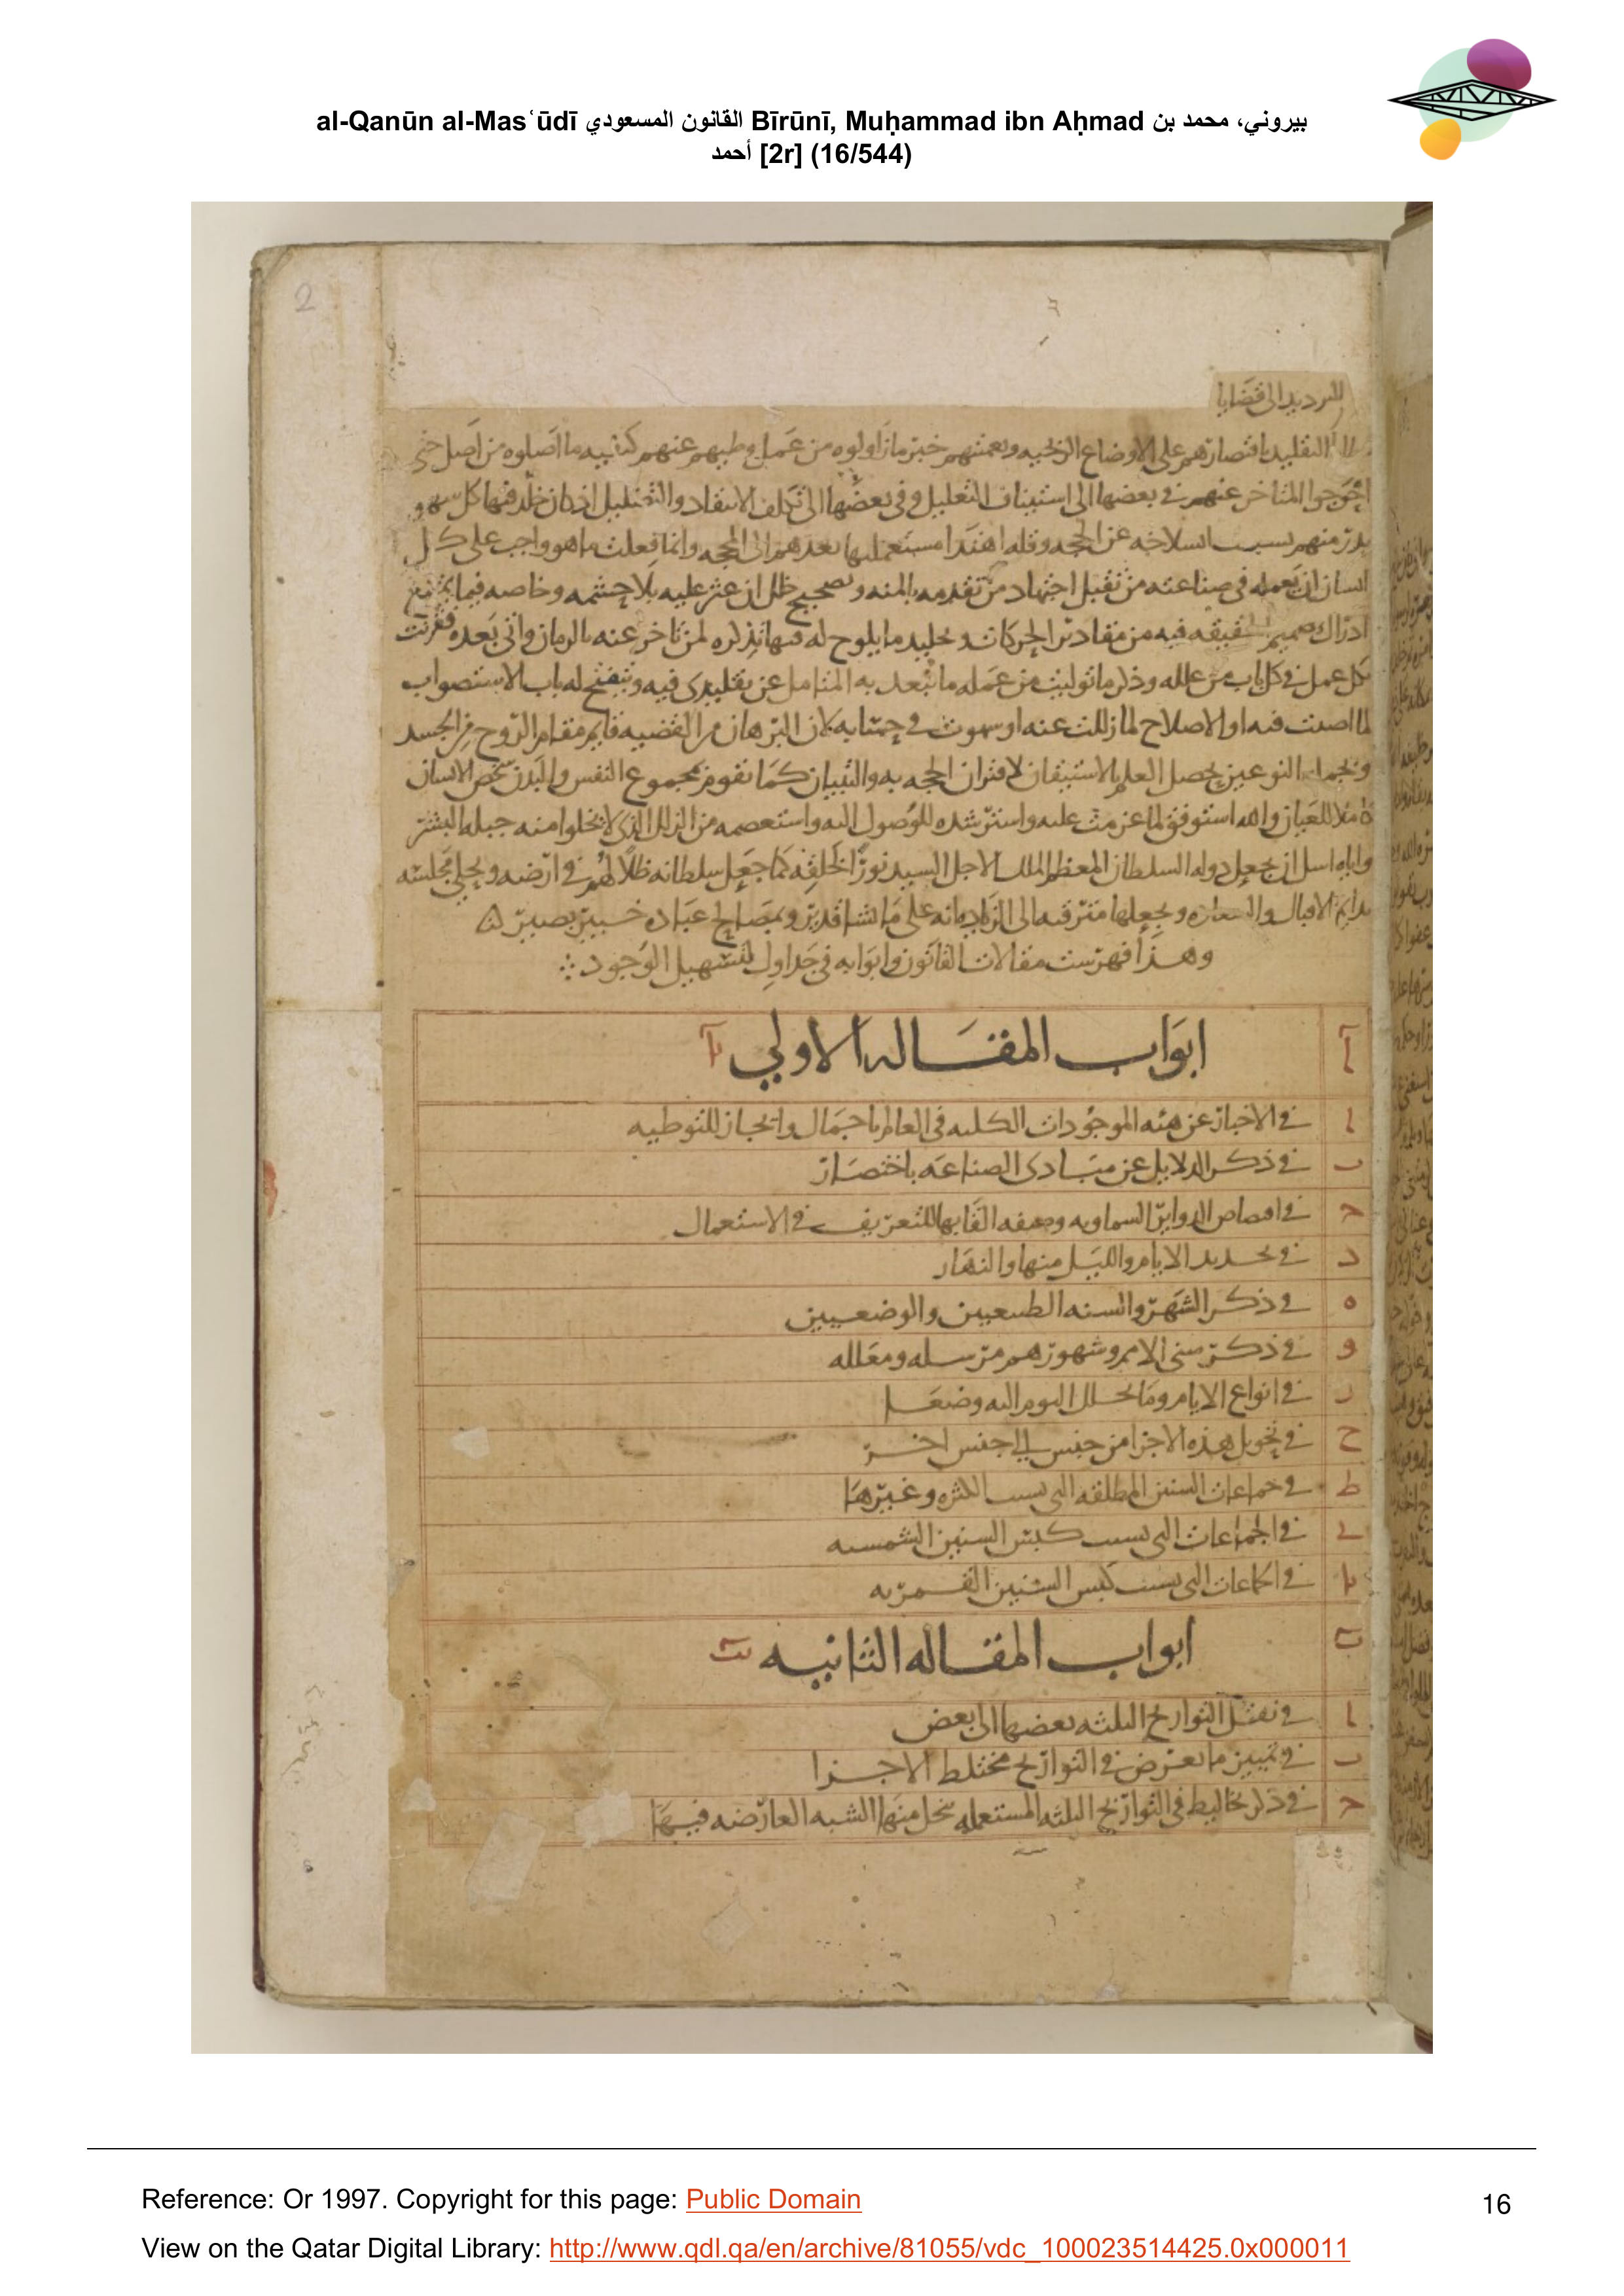 al-Qanūn al-Masʿūdī القانون المسعودي Bīrūnī, Muḥammad ibn Aḥmad بيروني، محمد بن
أحمد [2r] (16/544)
2
الى قضايا
التقليد باقتصارهم على الاوضاع الزيجيه وتعميتهم خبر ما زاولوه من عمل وطيهم عنهم كيفيه ما اصلوه من اصل حتى
احوجوا المتاخر عنهم في بعضها الى استيناف التعليل وفي بعضها الى تكلف الانتقاد والتضليل اذ كان خلد فيها كل سهو
بدر منهم بسبب انسلاخه عن الحجه وقله اهتدا مستعمليها بعدهم الى المحجه وانما فعلت ما هو واجب على كل
انسان ان يعمله في صناعته من تقبل اجتهاد من تقدمه بالمنه وتصحيح خلل ان عثر عليه بلا حشمه وخاصه فيما يمتنع
ادراك صميم الحقيقه فيه من مقادير الحركات وتخليد ما يلوح له فيها تذكره لمن تاخر عنه بالزمان واتى بعده فقرنت
بكل عمل في كل باب من علله وذكر ما توليت من عمله ما يبعد به المتامل عن تقليدي فيه وينفتح له باب الاستصواب
لما اصبت فيه او الاصلاح لما زللت عنه او سهوت في حسابه لان البرهان من القضيه قايم مقام الروح من الجسد
وبجمله النوعين يحصل العلم بالاستيقان لاقتران الحجه به والتبيان كما تقوم بمجموع النفس والبدن شخص الانسان
كاملا للعيان والله استوفق لما عزمت عليه واسترشده للوصول اليه واستعصمه من الزلل الذي لا يخلوا منه جبله البشر
واياه اسل ان يجعل دوله السلطان المعظم الملك الاجل السيد نورا لخلقه كما جعل سلطانه ظلا لهم في ارضه ويحلي مجلسه
بدايم الاقبال والسعاده ويجعلها مترقيه الى الزياده انه على ما يشا قدير وبمصالح عباده خبير بصير
وهذا فهرست مقالات القانون وابوابه في جداول لتسهيل الوجود
آ ابواب المقاله الاولى يا
ا في الاخبار عن هيئه الموجودات الكليه في العالم باجمال وايجاز للتوطيه
ب في ذكر الدلايل عن مبادى الصناعه باختصار
ج في اقصاص الدواير السماويه وصفه القابها للتعريف في الاستعمال
د في تحديد الايام والليل منها والنهار
ه في ذكر الشهر والسنه الطبيعيين والوضعيين
و في ذكر سنى الامم وشهورهم مرسله ومعلله
ز في انواع الايام وما يتحلل اليوم اليه وضعا
ح في تحويل هذه الاجزا من جنس الى جنس اخر
ط في جماعات السنين المطلقه التى بسبب الكثره وغيرها
ي في الجماعات التى بسبب كبس السنين الشمسيه
يا في الجماعات التى بسبب كبس السنين القمريه
ب ابواب المقاله الثانيه يب
ا في نقل التواريخ الثلثه بعضها الى بعض
ب في تمييز ما يعرض في التواريخ مختلط الاجزا
ج في ذكر تخاليط في التواريخ الثلثه المستعمله ينحل منها الشبه العارضه فيها
Reference: Or 1997. Copyright for this page: Public Domain
16
View on the Qatar Digital Library: http://www.qdl.qa/en/archive/81055/vdc_100023514425.0x000011